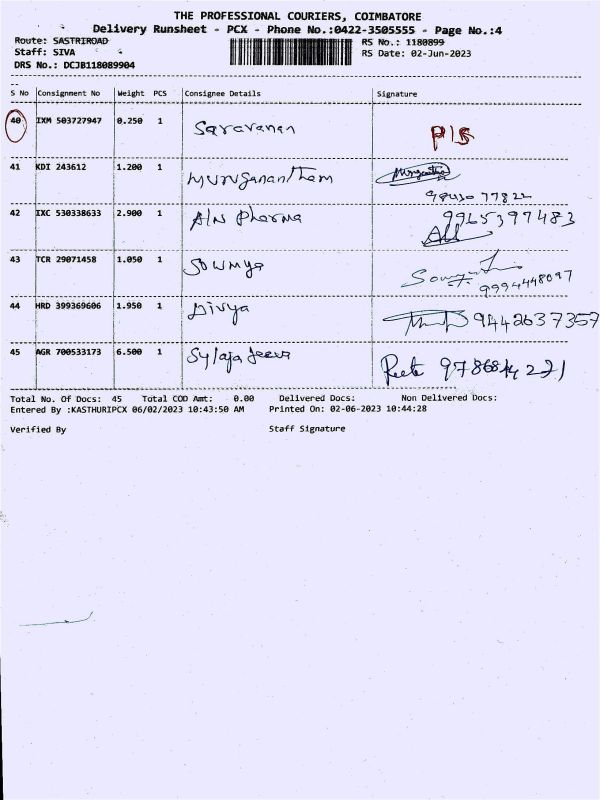 THE PROFESSIONAL COURIERS, COIMBATORE
Delivery Runsheet - PCX - Phone No.:0422-3505555 - Page No.:4
Route: SASTRIROAD RS No.: 1180899
Staff: SIVA RS Date: 02-Jun-2023
DRS No.: DCJB118089904
S No Consignment No Weight PCS Consignee Details Signature
40 IXM 503727947 0.250 1 Saravanan P/S
41 KDI 243612 1.200 1 Muruganantham
98430 77822
42 IXC 530338633 2.900 1 A/N Pharma 9965397483
43 TCR 29071458 1.050 1 Sowmya
9994448097
44 HRD 399369606 1.950 1 Divya 9442637357
45 AGR 700533173 6.500 1 Sylaja
Total No. Of Docs: 45 Total COD Amt: 0.00 Delivered Docs: Non Delivered Docs:
Entered By :KASTHURIPCX 06/02/2023 10:43:50 AM Printed On: 02-06-2023 10:44:28
Verified By Staff Signature